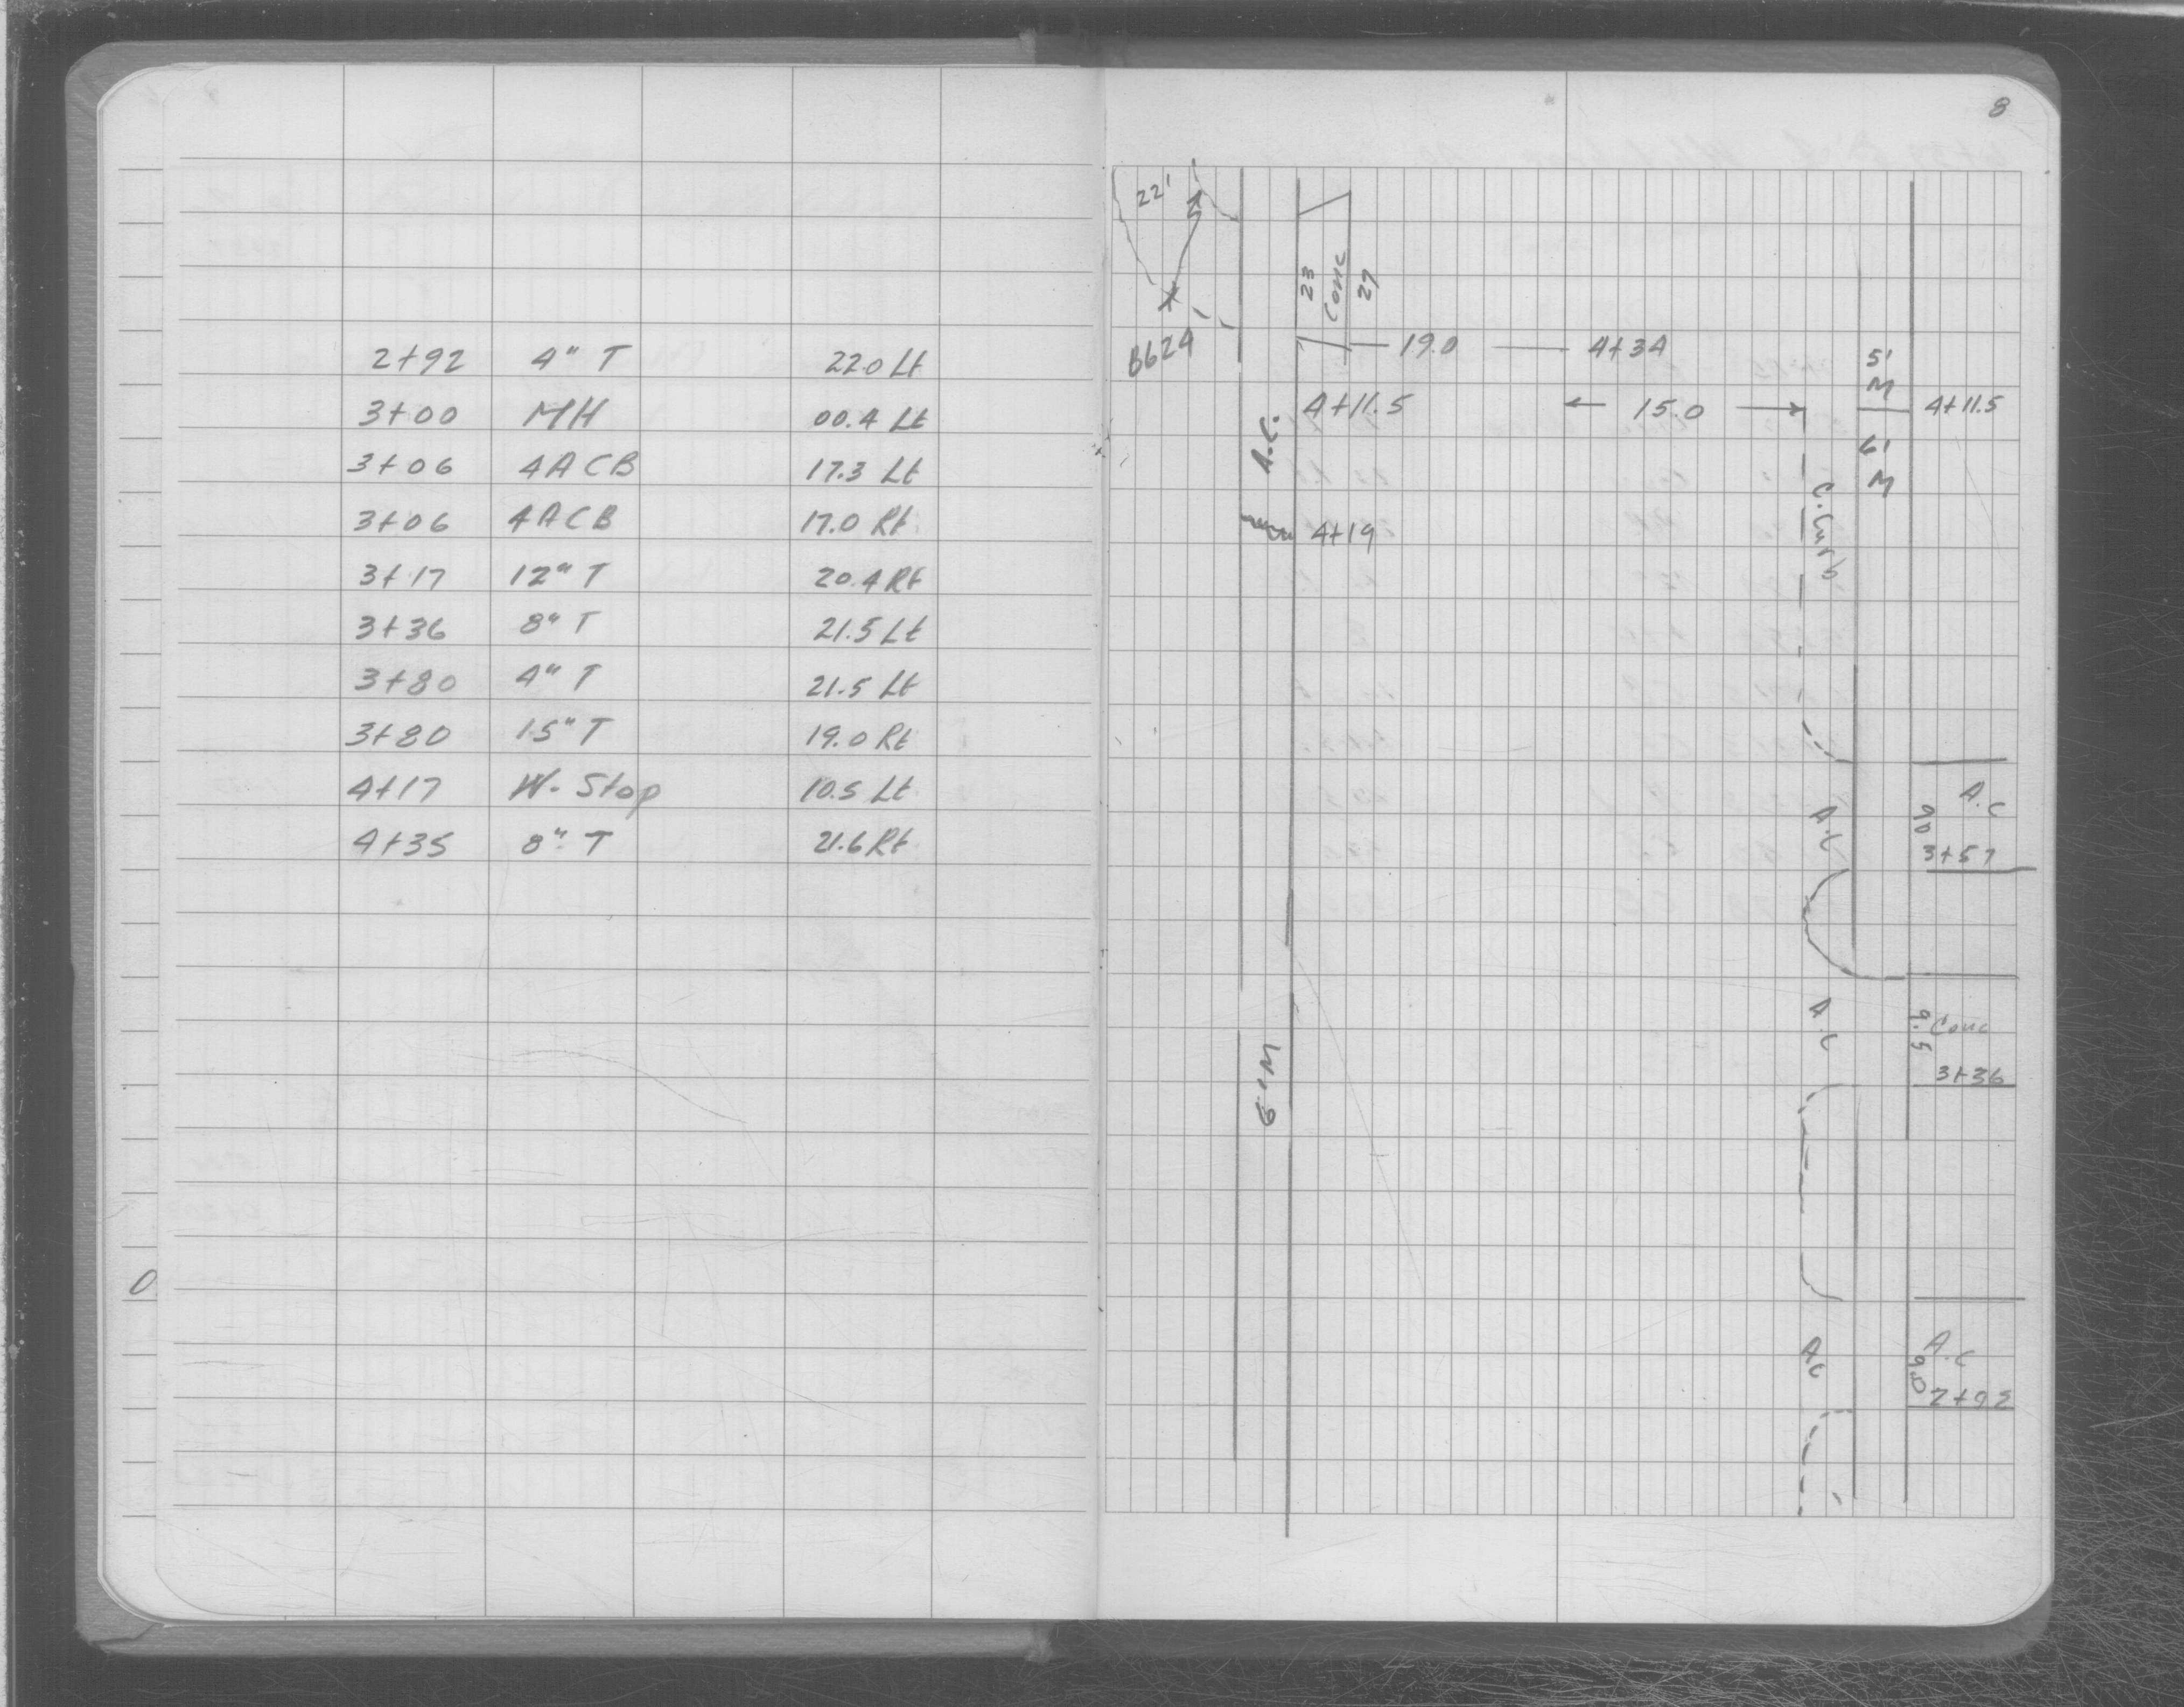 2+92 4" T 22.0 Lt
3+00 MH 00.4 Lt
3+06 4ACB 17.3 Lt
3+06 4ACB 17.0 Rt
3+17 12" T 20.4 Rt
3+36 8" T 21.5 Lt
3+80 4" T 21.5 Lt
3+80 15" T 19.0 Rt
4+17 W. Stop 10.5 Lt
4+35 8" T 21.6 Rt
0
8
22'
23
Conc
27
B624
19.0 4+34
5'
M
4+11.5 15.0 4+11.5
A.C.
6'
M
C. Curb
4+19
A.C
A.C
3+57
A.C
9.5 Conc
3+36
6' M
A.C
A.C
9.0
2+92